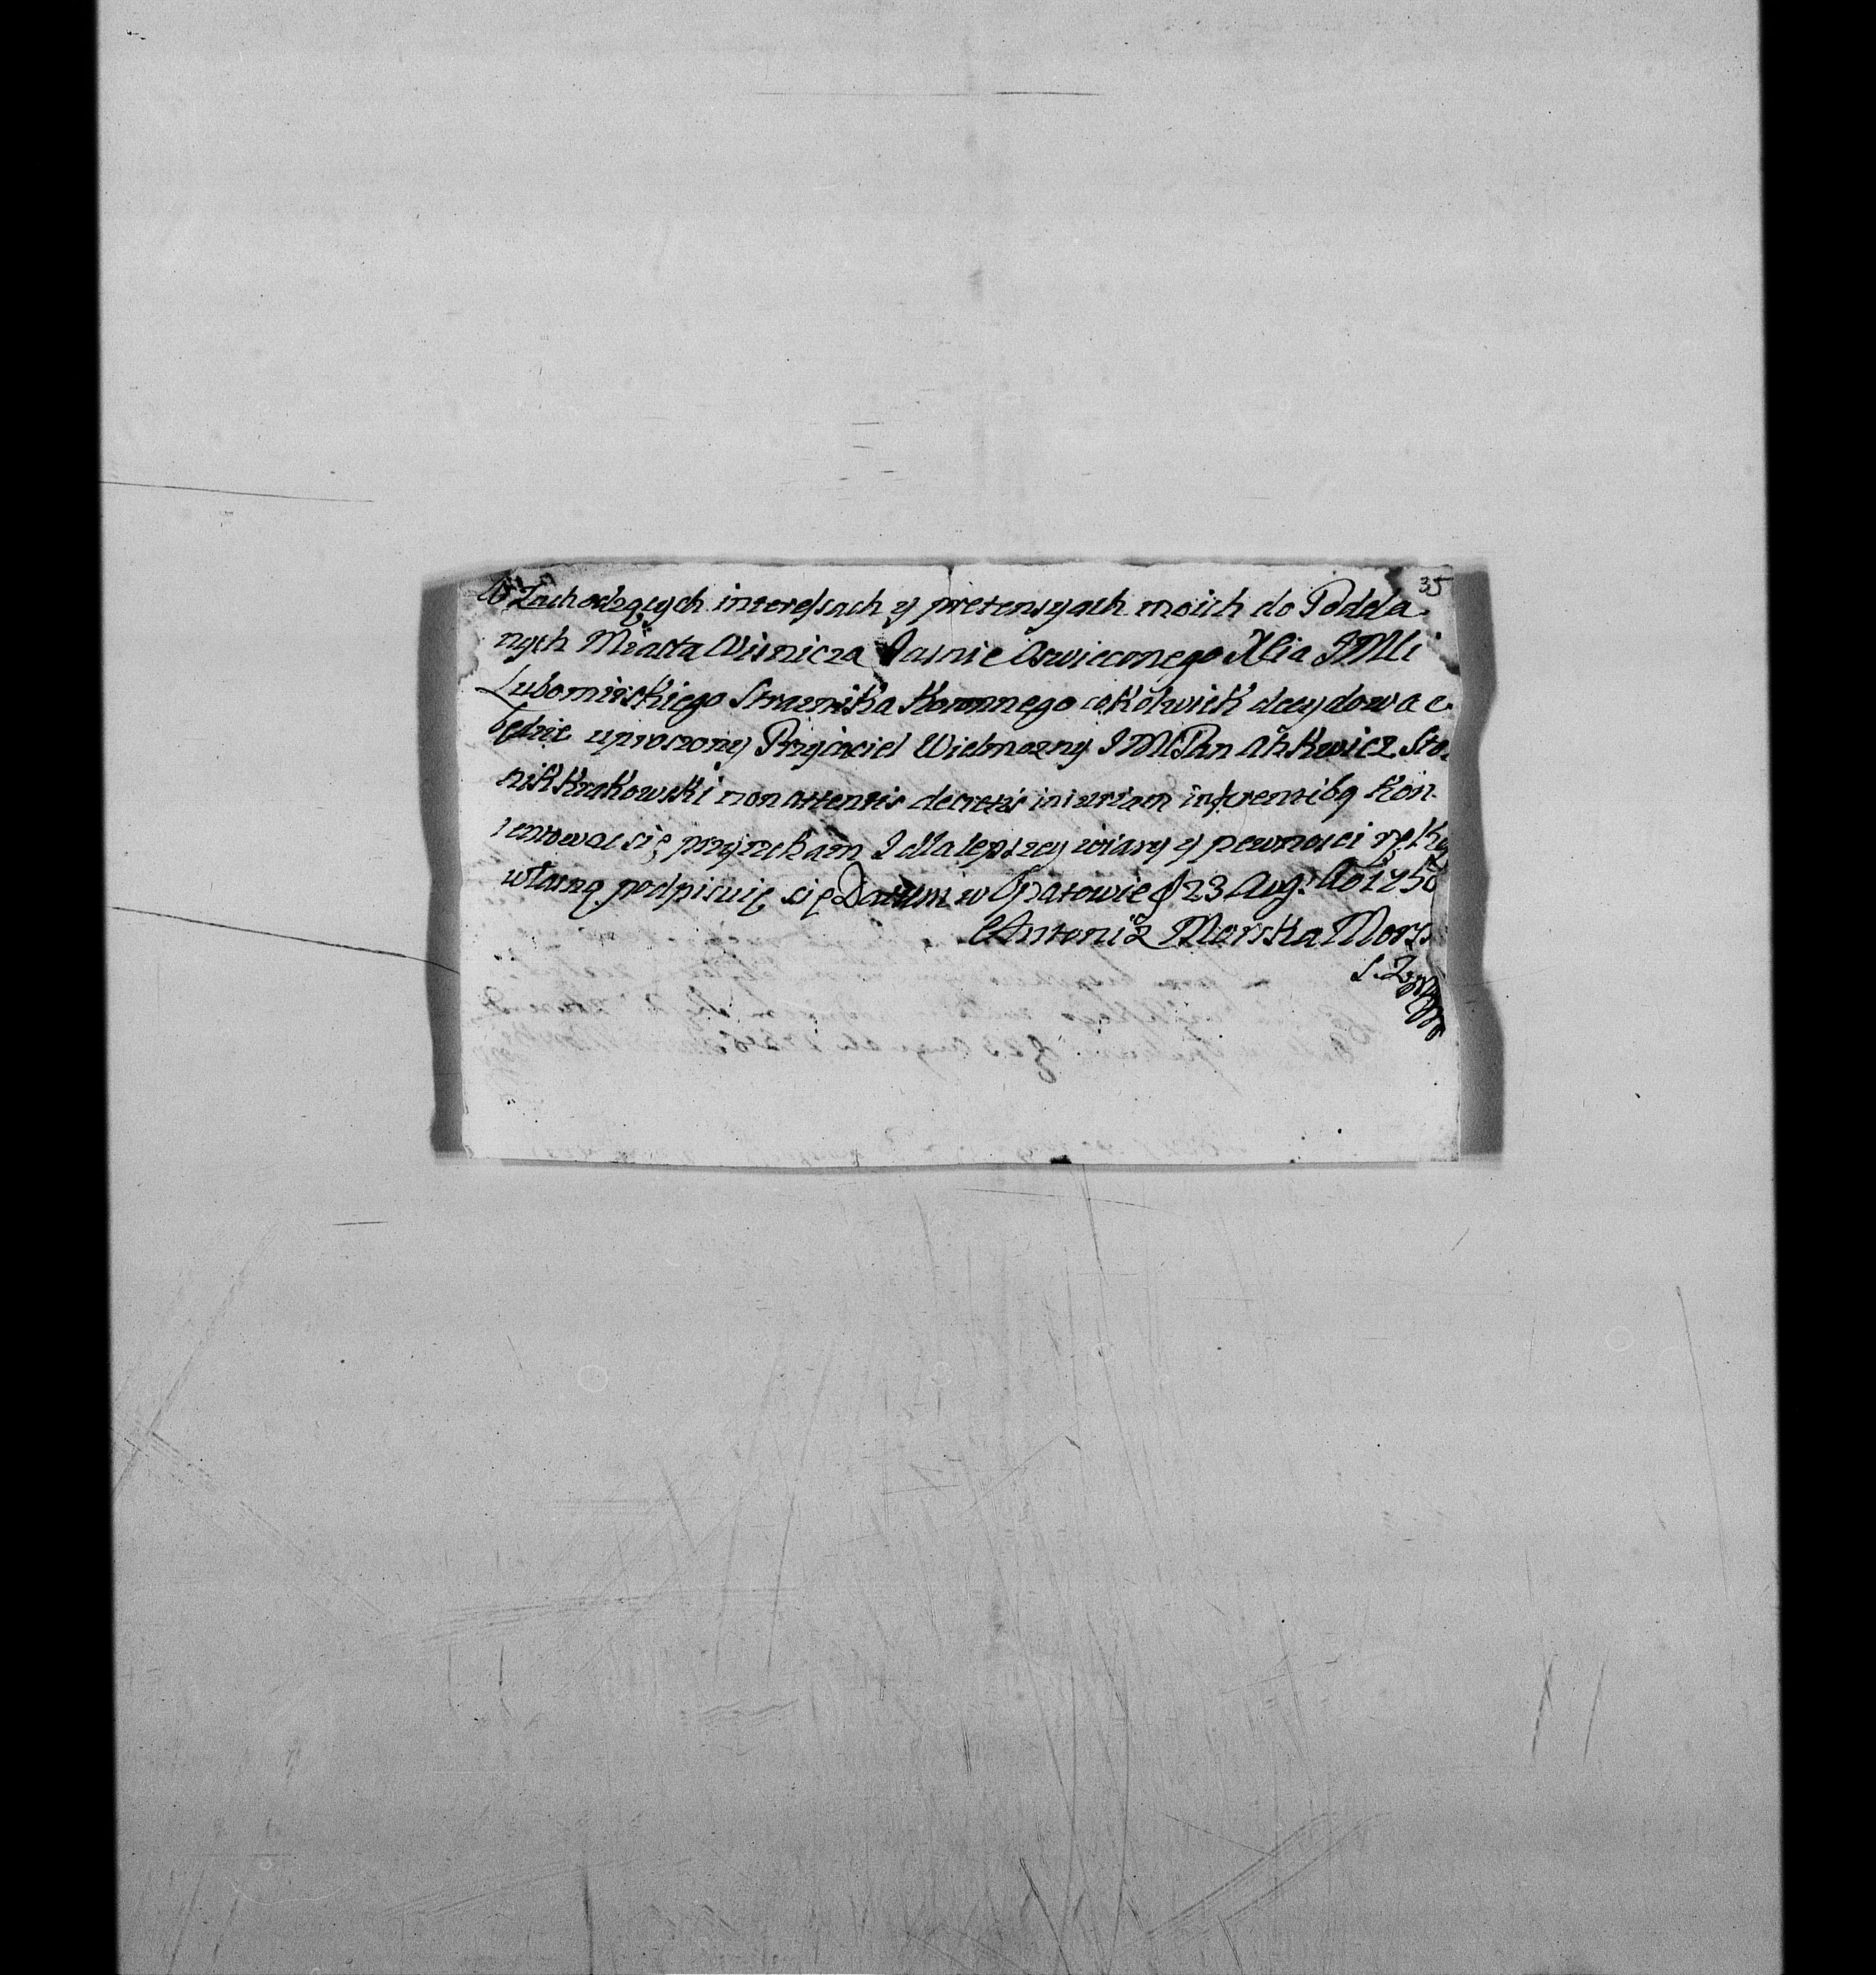 35
W Zachodzących interessach y pretensyach moich do Podda-
nych Miasta Wisnicza Jasnie Oswieconego Xcia JMci
Lubomirskiego Straznika Koronnego cokolwiek decydowac
będzie uproszony Przyiaciel Wielmozny JMPan Ankwicz Sto-
nik Krakowski non attentis decretis iniuriam inferentibq Kon-
tentowac się przyrzekam I dla lepszey wiary y pewnosci ręką
własną podpisuię się Datum w Opatowie d 23 Aug: Ao 175
Antoni Morska Mors